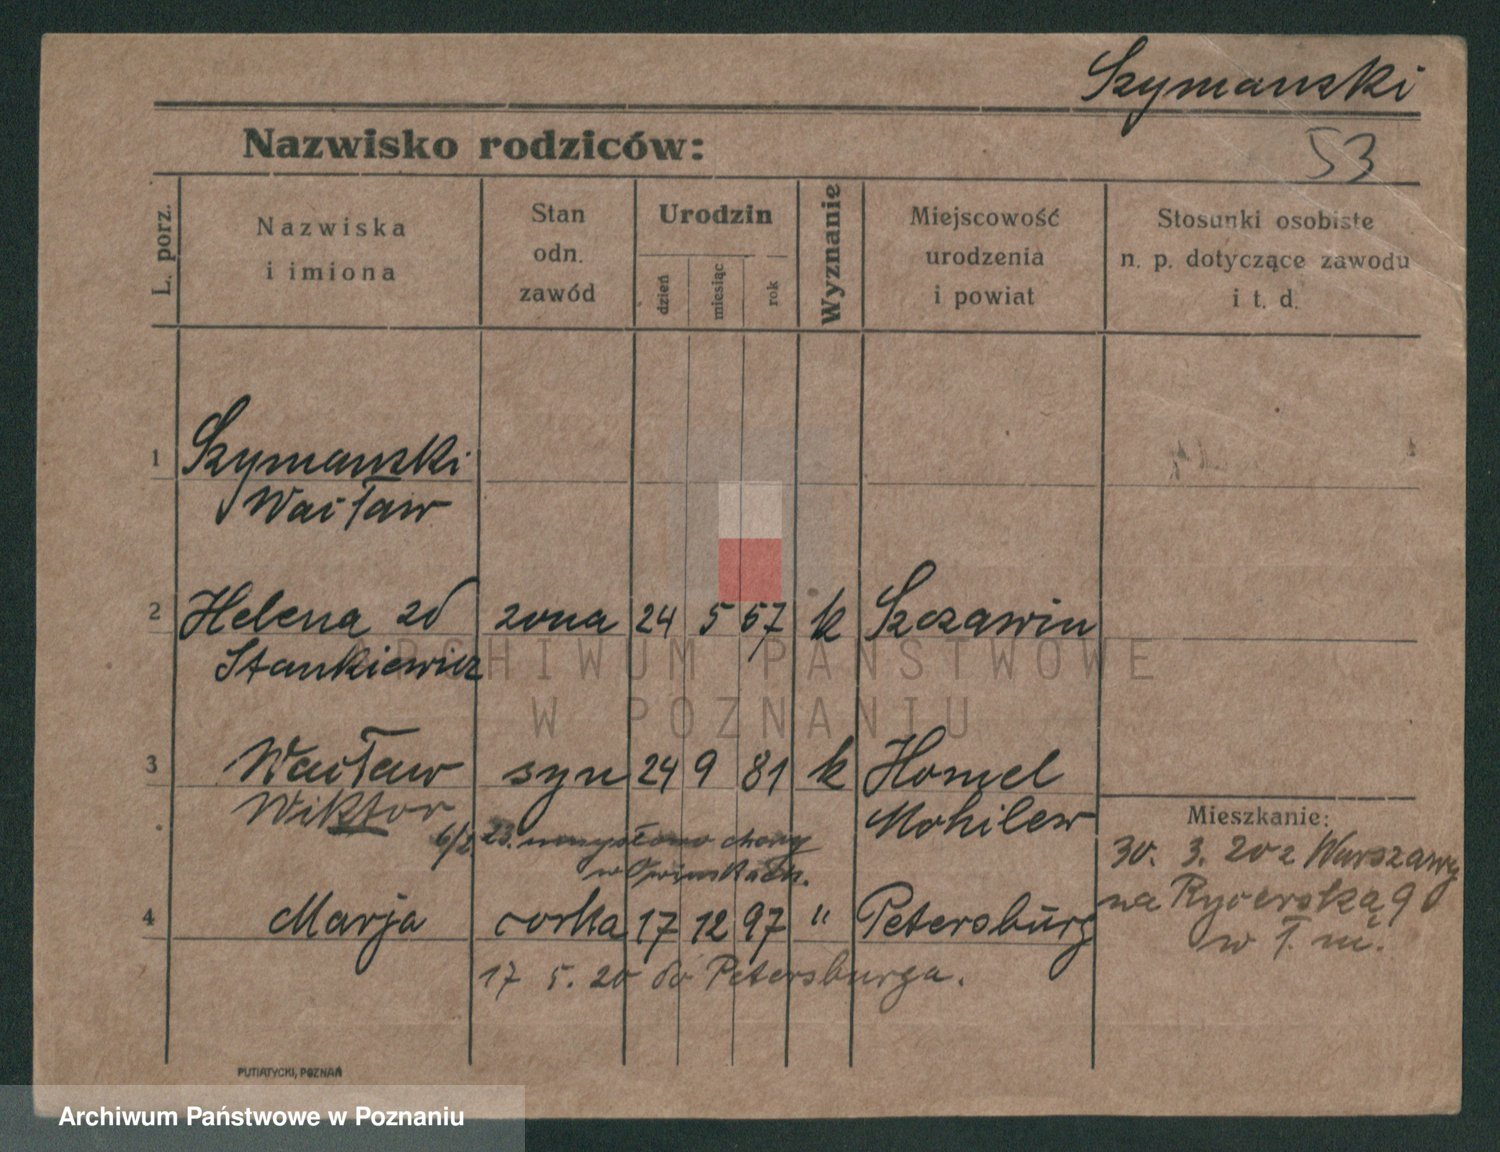 Szymanski
Nazwisko rodziców:
53
L. porz.
Nazwiska
i imiona
Stan
odn.
zawód
Urodzin
dzień
miesiąc
rok
Wyznanie
Miejscowość
urodzenia
i powiat
Stosunki osobiste
n. p. dotyczące zawodu
i t. d.
1 Szymanski
Wacław
2 Helena zd zona 24 5 57 k Szczawin
Stankiewicz
ARCHIWUM PAŃSTWOWE
W POZNANIU
3 Wacław syn 24 9 81 k Homel
Wiktor Mohilew
23. umysłowo chory
w Owinskach.
4 Marja corka 17 12 97 " Petersburg
17 5. 20 do Petersburga.
Mieszkanie:
30. 3. 20 z Warszawy
na Rycerską 9
w T. m.
PUTIATYCKI, POZNAŃ
Archiwum Państwowe w Poznaniu